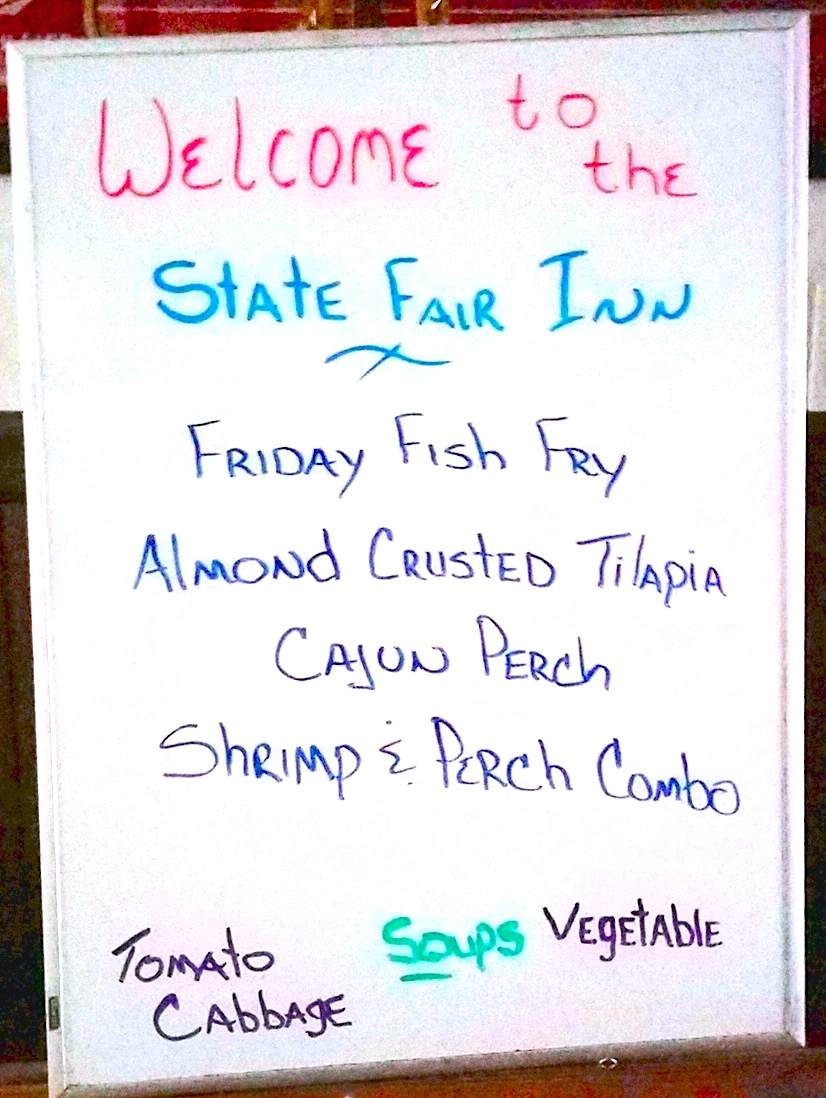 Welcome to
the
State Fair Inn
Friday Fish Fry
Almond Crusted Tilapia
Cajun Perch
Shrimp & Perch Combo
Soups
Tomato
Cabbage
Vegetable